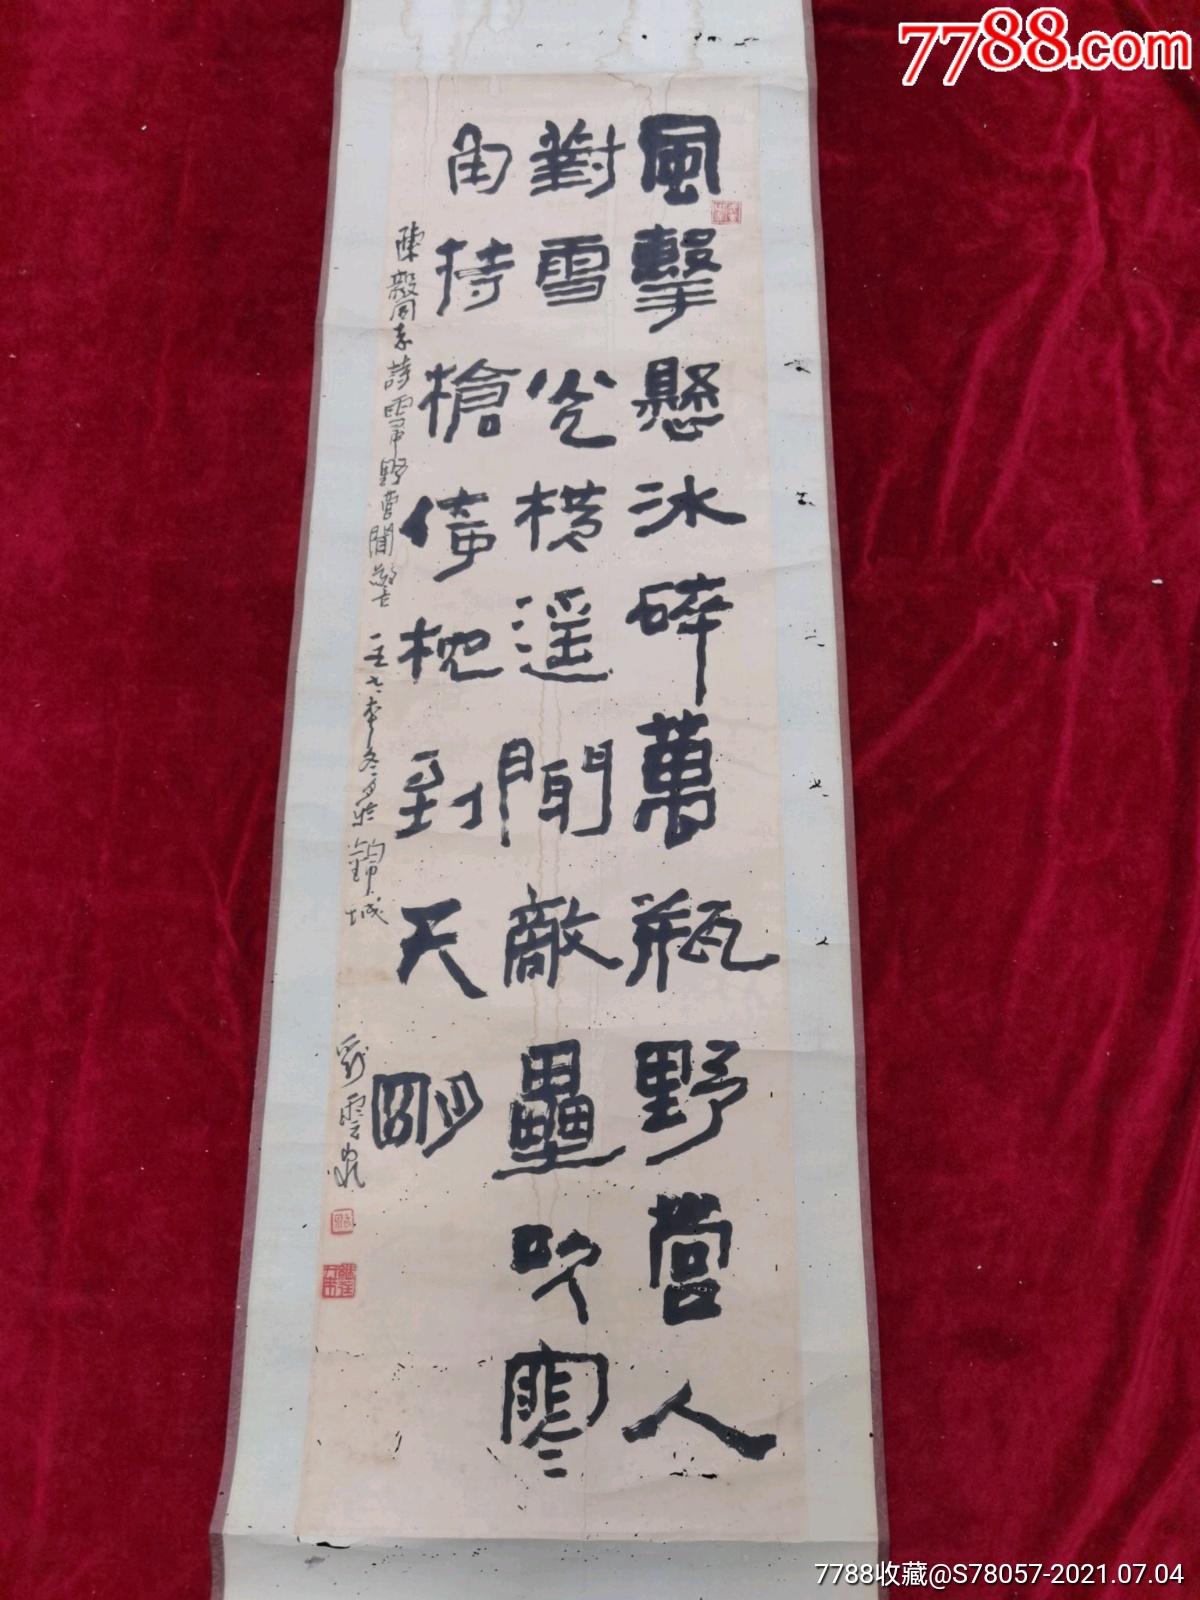 7788.com
風擊懸冰碎萬瓶野營人
對雪光橫遥聞敵壘吹寒
角持槍倚枕到天明
陳毅同志詩雪中野營聞警
冬月於錦城
劉雲泉
7788收藏@S78057-2021.07.04